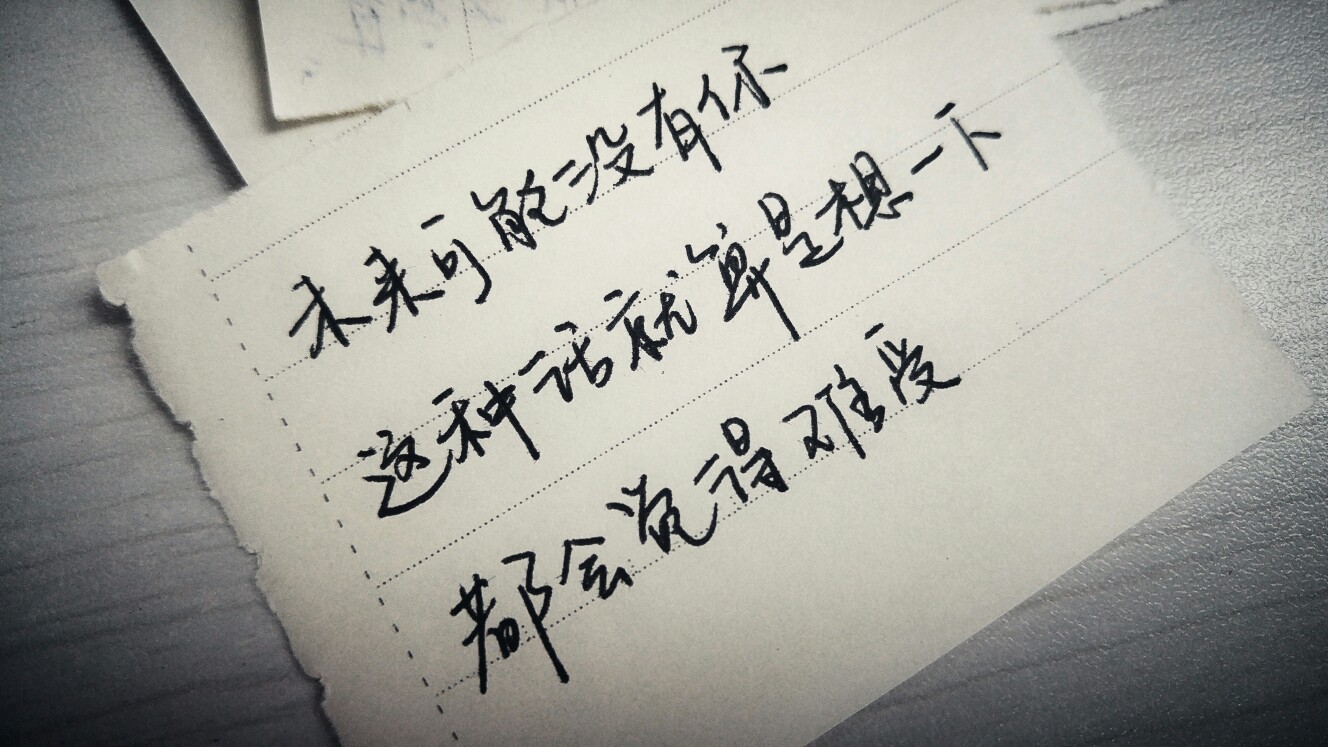 未来可能没有你
这种话就算是想一下
都会觉得难受